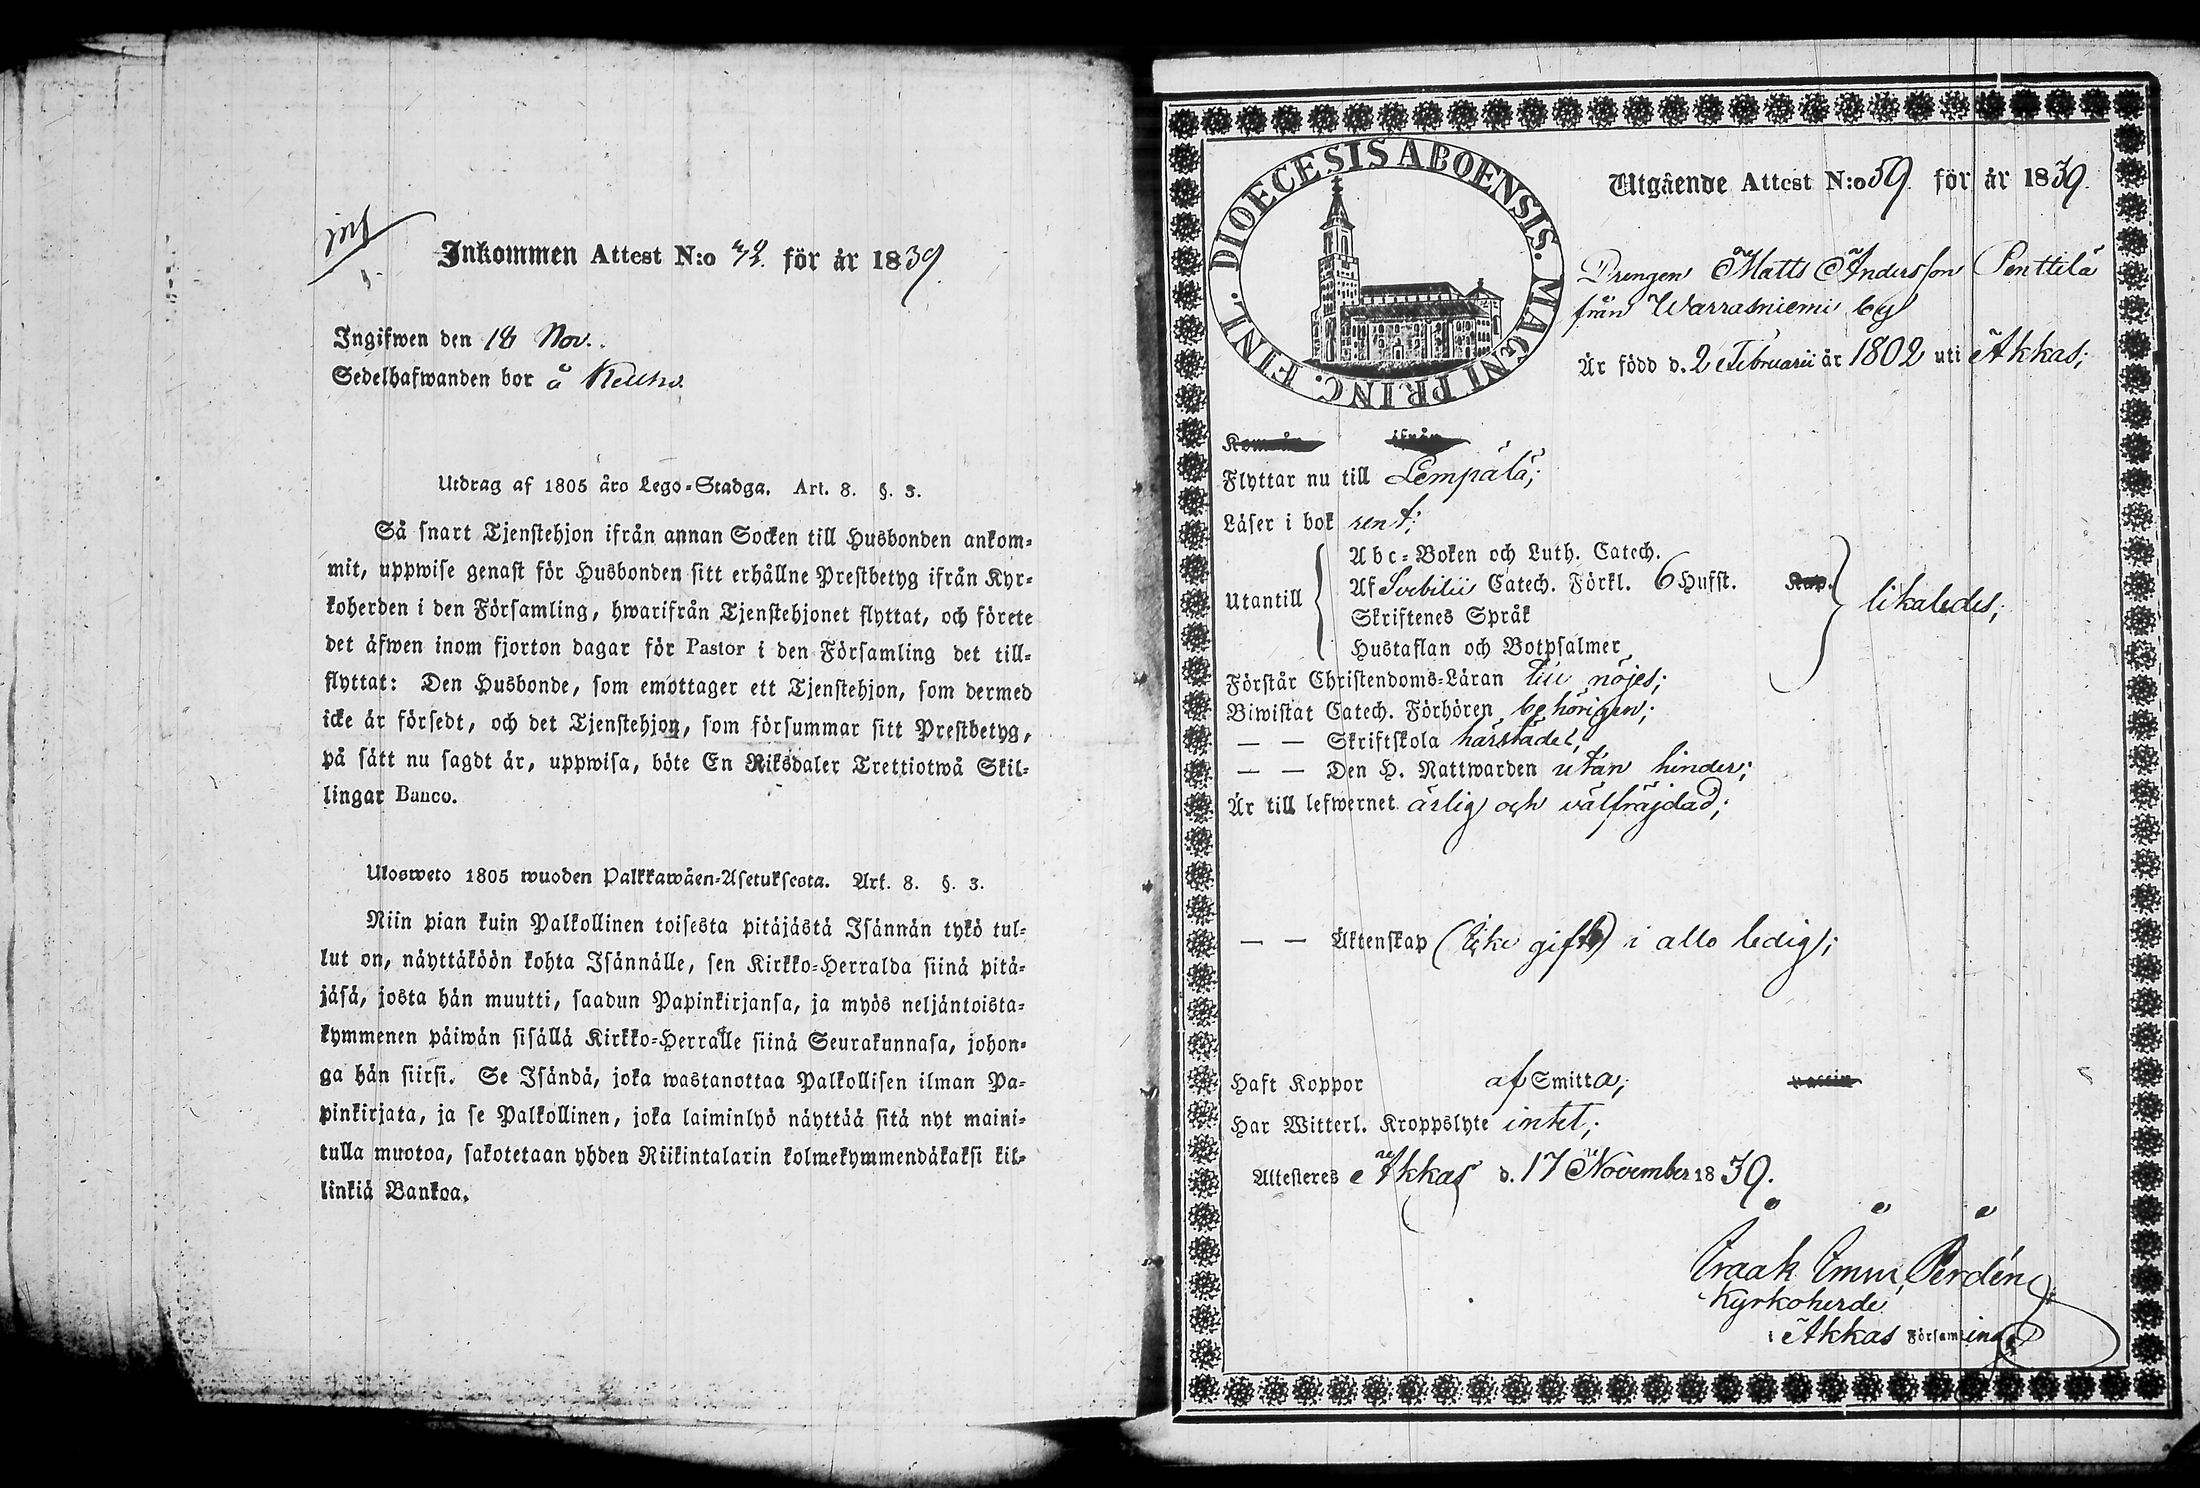 Inkommen Attest N:o 42. för år 1839.
Ingifwen den 18 Nov.
Sedelhafwanden bor å
Utdrag af 1805 års Lego-Stadga. Art. 8. §. 3.
Så snart Tjenstehjon ifrån annan Socken till Husbonden ankom-
mit, uppwise genast för Husbonden sitt erhållne Prestbetyg ifrån Kyr-
koherden i den Församling, hwarifrån Tjenstehjonet flyttat, och förete
det äfwen inom fjorton dagar för Pastor i den Församling det till-
flyttat: Den Husbonde, som emottager ett Tjenstehjon, som dermed
icke är försedt, och det Tjenstehjon, som försummar sitt Prestbetyg,
på sätt nu sagdt är, uppwisa, böte En Riksdaler Trettiotwå Skil-
lingar Banco.
Ulosweto 1805 wuoden Palkkawäen-Asetuksesta. Art. 8. §. 3.
Niin pian kuin Palkollinen toisesta pitäjästä Isännän tykö tul-
lut on, näyttäköön kohta Isännälle, sen Kirkko-Herralda siinä pitä-
jäsä, josta hän muutti, saadun Papinkirjansa, ja myös neljäntoista-
kymmenen päiwän sisällä Kirkko-Herralle siinä Seurakunnasa, johon-
ga hän siirsi. Se Isändä, joka wastanottaa Palkollisen ilman Pa-
pinkirjata, ja se Palkollinen, joka laiminlyö näyttää sitä nyt maini-
tulla muotoa, sakotetaan yhden Riikintalarin kolmekymmendäkaksi kil-
linkiä Bankoa.
DIOECESIS ABOENSIS. MAGNI PRINC. FINL.
Utgående Attest N:o 59. för år 1839.
Drengen Matts Andersson Penttilä
från Warrasniemi by
Är född d. 2 Februarii år 1802 uti Akkas;
Kommen ifrån
Flyttar nu till Lempälä;
Läser i bok rent;
Utantill
Abc-Boken och Luth. Catech.
Af Svebilii Catech. Förkl. 6 Hufst. Kap.
Skriftenes Språk
Hustaflan och Botpsalmer
likaledes;
Förstår Christendoms-Läran till nöjes;
Biwistat Catech. Förhören behörigen;
— — Skriftskola härstädes;
— — Den H. Nattwarden utan hinder;
Är till lefwernet ärlig och välfräjdad;
— — Äktenskap (icke gift) i allo ledig;
Haft Koppor af Smitta; vaccin
Har Witterl. Kroppslyte intet;
Attesteres Akkas d. 17 November 1839.
Isaak Emm. Perdén
Kyrkoherde
i Akkas Församling